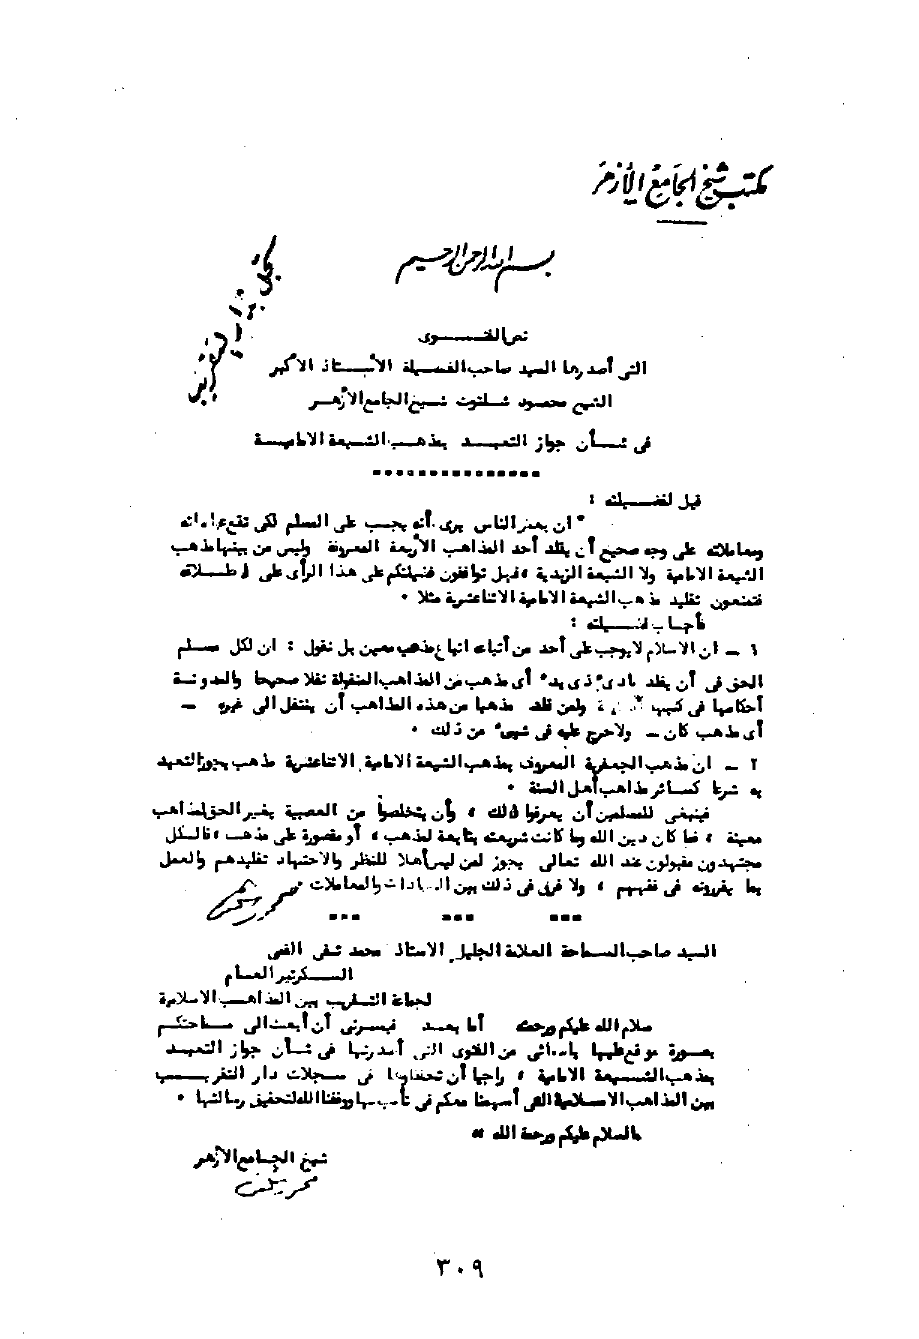 مكتب شيخ الجامع الأزهر
بسم الله الرحمن الرحيم
نص الفتوى
التى أصدرها السيد صاحب الفضيلة الأستاذ الأكبر
الشيخ محمود شلتوت شيخ الجامع الأزهر
فى شأن جواز التعبد بمذهب الشيعة الامامية
قيل لفضيلته :
" ان بعض الناس يرى أنه يجب على المسلم لكى تقع عباداته
ومعاملاته على وجه صحيح أن يقلد أحد المذاهب الأربعة المعروفة وليس من بينها مذهب
الشيعة الامامية ولا الشيعة الزيدية ، فهل توافقون فضيلتكم على هذا الرأى على اطلاقه
فتمنعون تقليد مذهب الشيعة الامامية الاثناعشرية مثلا .
فأجاب فضيلته :
١ - ان الاسلام لا يوجب على أحد من أتباعه اتباع مذهب معين بل نقول : ان لكل مسلم
الحق فى أن يقلد بادئ ذى بدء أى مذهب من المذاهب المنقولة نقلا صحيحا والمدونة
أحكامها فى كتبها ولمن قلد مذهبا من هذه المذاهب أن ينتقل الى غيره -
أى مذهب كان - ولا حرج عليه فى شىء من ذلك .
٢ - ان مذهب الجعفرية المعروف بمذهب الشيعة الامامية الاثناعشرية مذهب يجوز التعبد
به شرعا كسائر مذاهب أهل السنة .
فينبغى للمسلمين أن يعرفوا ذلك ، وأن يتخلصوا من العصبية بغير الحق لمذاهب
معينة ، فما كان دين الله وما كانت شريعته بتابعة لمذهب ، أو مقصورة على مذهب ، فالكل
مجتهدون مقبولون عند الله تعالى يجوز لمن ليس أهلا للنظر والاجتهاد تقليدهم والعمل
بما يقررونه فى فقههم ، ولا فرق فى ذلك بين العبادات والمعاملات
محمود شلتوت
السيد صاحب السماحة العلامة الجليل الاستاذ محمد تقى القمى
السكرتير العام
لجماعة التقريب بين المذاهب الاسلامية
سلام الله عليكم ورحمته أما بعد فيسرنى أن أبعث الى سماحتكم
بصورة موقع عليها بامضائى من الفتوى التى أصدرتها فى شأن جواز التعبد
بمذهب الشيعة الامامية ، راجيا أن تحفظوها فى سجلات دار التقريب
بين المذاهب الاسلامية التى أسهمنا معكم فى تأسيسها ووفقنا الله لتحقيق رسالتها .
والسلام عليكم ورحمة الله ،،
شيخ الجامع الأزهر
محمود شلتوت
٣٠٩